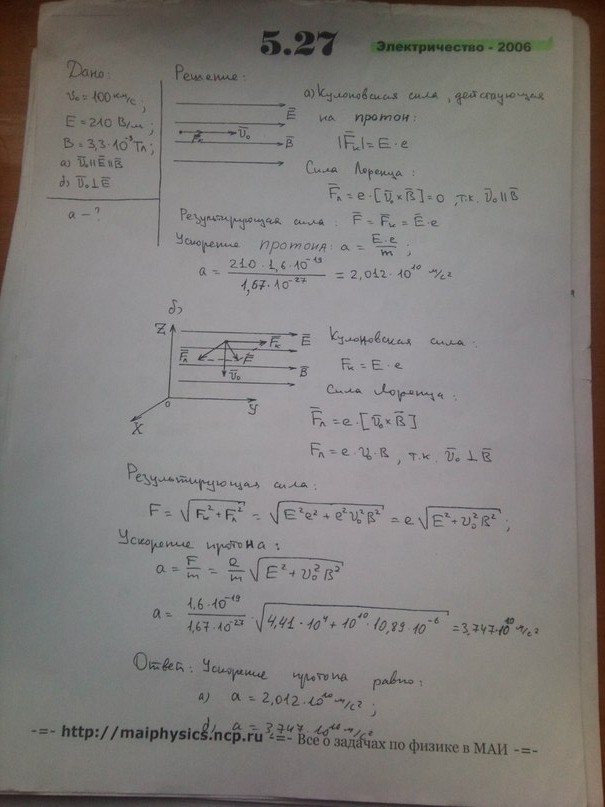 5.27
Электричество - 2006
Дано:
v₀ = 100 км/с;
E = 210 В/м;
B = 3,3·10⁻³ Тл;
а) v̅₀ ∥ E̅ ∥ B̅
б) v̅₀ ⊥ E̅
a - ?
Решение:
E̅
F̅к v̅₀
B̅
а) Кулоновская сила, действующая
на протон:
|F̅к| = E·e
Сила Лоренца:
F̅л = e·[v̅₀×B̅] = 0, т.к. v̅₀ ∥ B̅
Результирующая сила: F̅ = F̅к = E̅·e
Ускорение протона: a = E·e/m;
a = 210·1,6·10⁻¹⁹ / 1,67·10⁻²⁷ = 2,012·10¹⁰ м/с²
б)
Z
F̅к E̅
F̅л F̅
v̅₀ B̅
0 Y
X
Кулоновская сила:
Fк = E·e
Сила Лоренца:
F̅л = e·[v̅₀×B̅]
Fл = e·v₀·B, т.к. v̅₀ ⊥ B̅
Результирующая сила:
F = √(Fк² + Fл²) = √(E²e² + e²v₀²B²) = e√(E² + v₀²B²);
Ускорение протона:
a = F/m = e/m √(E² + v₀²B²)
a = 1,6·10⁻¹⁹ / 1,67·10⁻²⁷ · √(4,41·10⁴ + 10¹⁰·10,89·10⁻⁶) = 3,747·10¹⁰ м/с²
Ответ: Ускорение протона равно:
а) a = 2,012·10¹⁰ м/с²;
б) a = 3,747·10¹⁰ м/с²
-=- http://maiphysics.ncp.ru -=- Все о задачах по физике в МАИ -=-